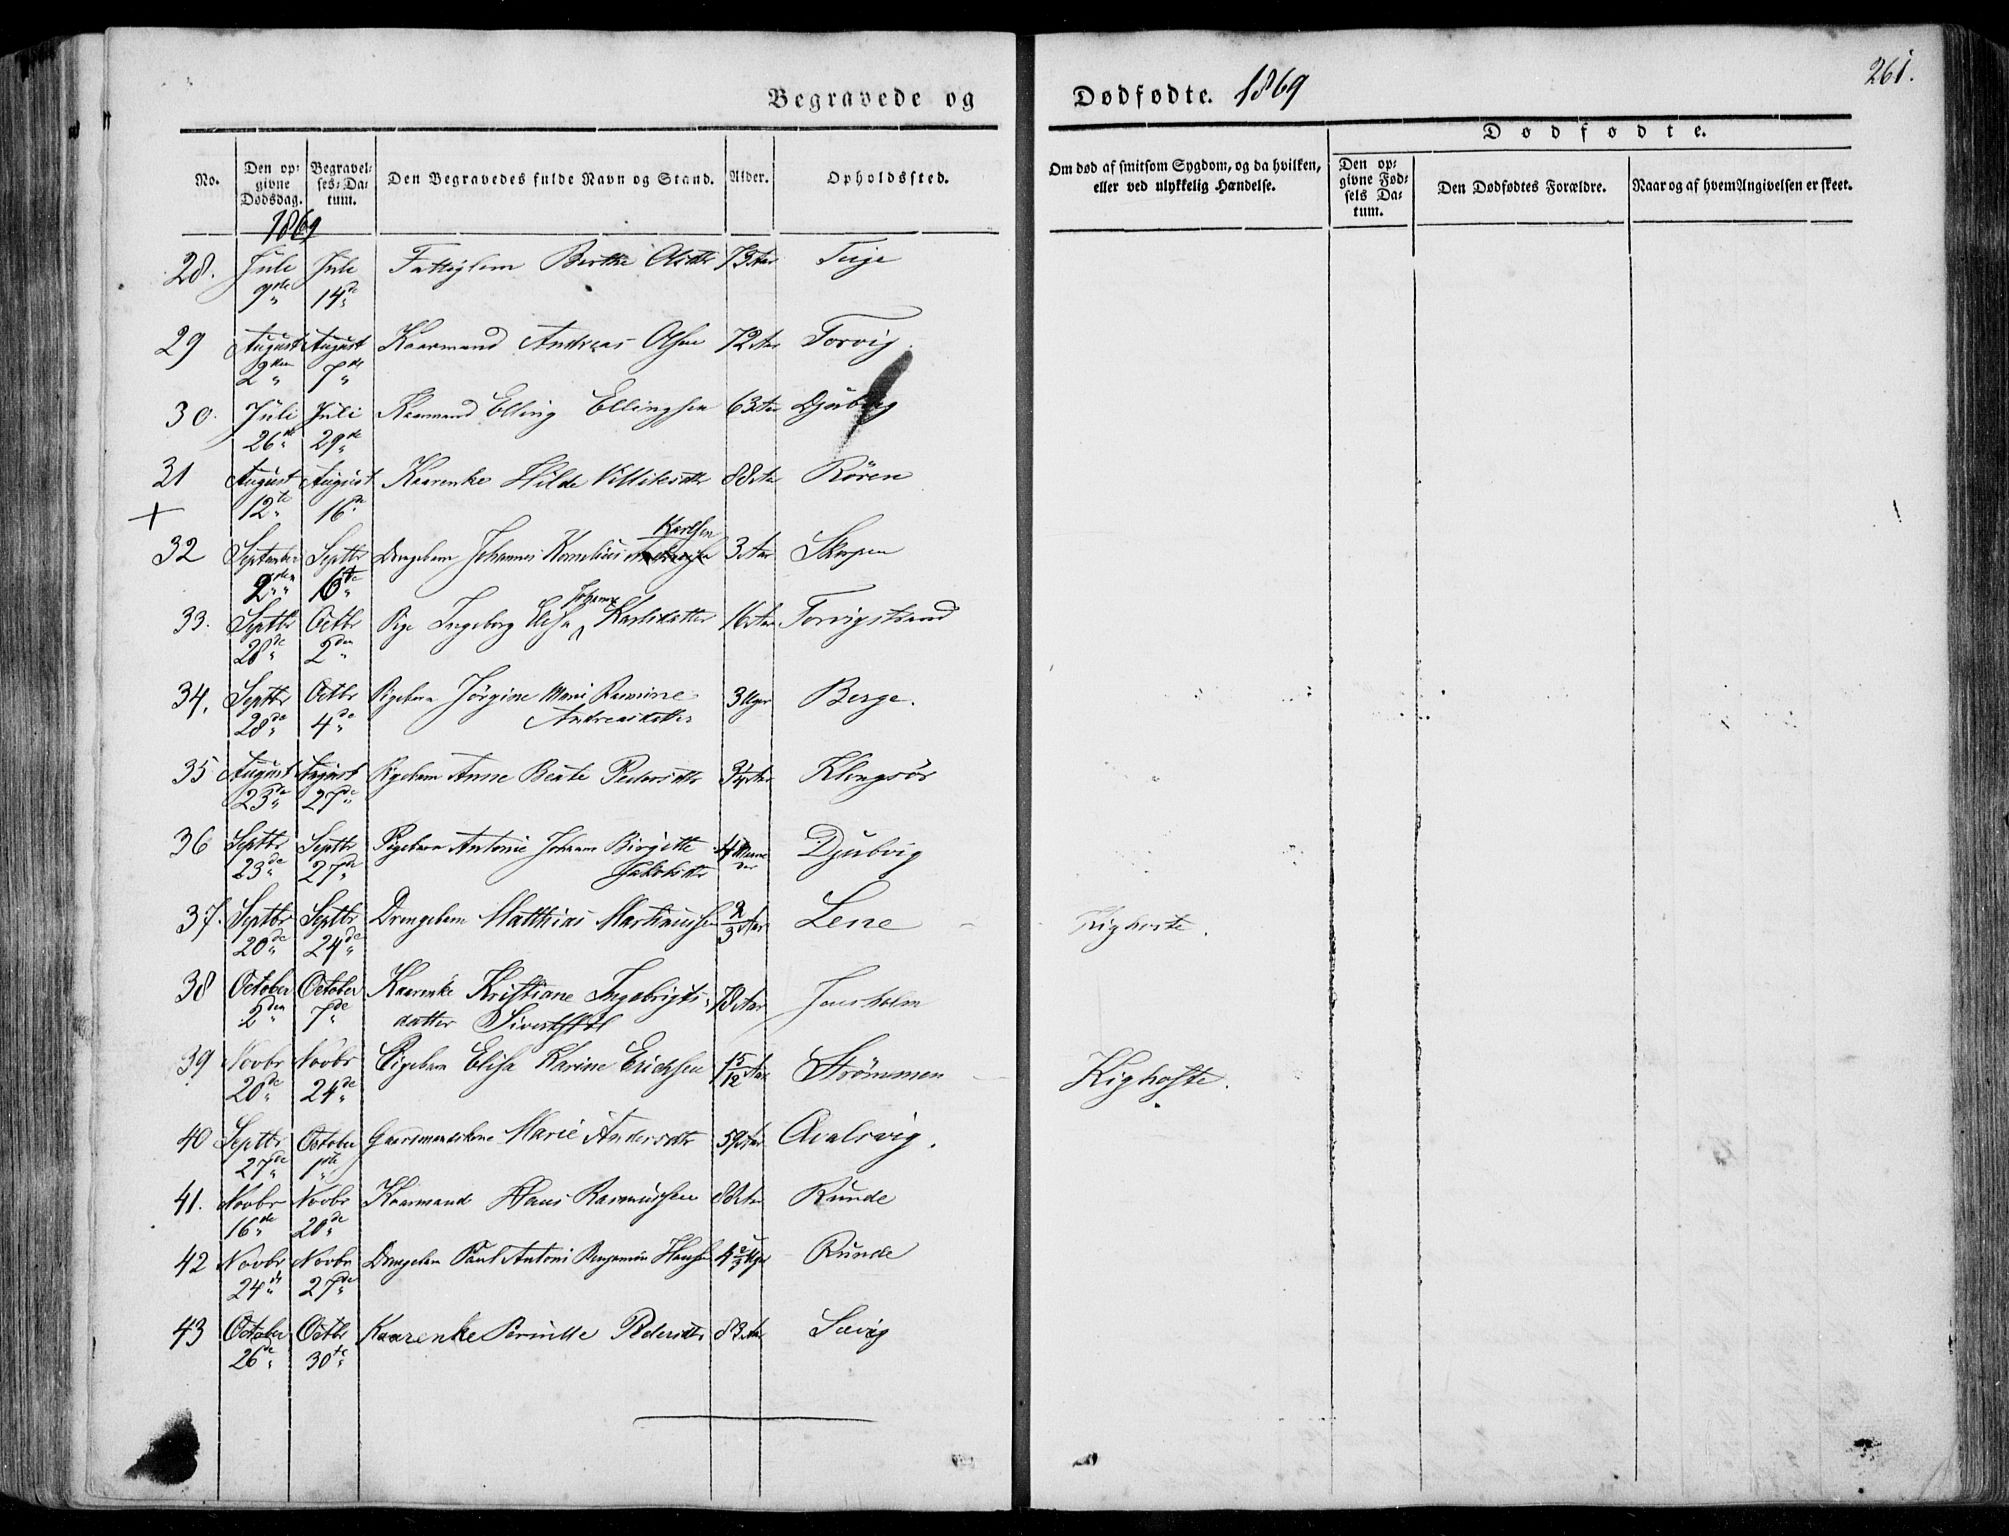 Begravede og
Dødfødte. 1869
261.
No.
Den opgivne Dødsdag.
Begravelses-Datum.
Den Begravedes fulde Navn og Stand.
Alder.
Opholdssted.
Om død af smitsom Sygdom, og da hvilken, eller ved ulykkelig Hændelse.
Dødfødte.
Den opgivne Fødsels Datum.
Den Dødfødtes Forældre.
Naar og af hvem Angivelsen er skeet.
1869
28. Juli 9de Juli 14de Fattiglem Berthe Olsdtr 73 Aar Teige
29 August 2den August 7de Kaarmand Andreas Olsen 72 Aar Torvig.
30. Juli 26de Juli 29de Kaarmand Elling Ellingsen 63 Aar
31 August 12te August 16de Kaarenke Hilde Villiksdtr 88 Aar Røren
+
32 September 2den Septbr 6te Drengebarn Johannes Kornelius Karlsen 3 Aar Skarpen
33. Septbr 28de Octbr 2den Pige Ingeborg Elisa Johanna Karlsdatter 16 Aar Torvigstrand
34. Septbr 28de Octbr 4de Pigebarn Jørgine Marie Rasmine Andreasdatter 3 Uger Berge.
35 August 23de August 27de Pigebarn Anne Beate Pedersdtr 3/4 Aar Klungsør
36 Septbr 23de Septbr 27de Pigebarn Antonie Johanne Birgitte Jakobsdtr 4 Maaneder Djubvig
37. Septbr 20de Septbr 24de Drengebarn Matthias Martinussen 2/3 Aar Lene Kighoste.
38 October 2den October 7de Kaarenke Kristiane Ingebrigtsdatter 78 Aar Jensholm
39 Novbr 20de Novbr 24de Pigebarn Elisa Karine Erichsen 15/12 Aar Strømmen Kighoste.
40 Septbr 27de October 1ste Gaardmandskone Marie Andersdtr 59 Aar
41. Novbr 16de Novbr 20de Kaarmand Hans Rasmussen Aar Runde
42 Novbr 24de Novbr 27de Drengebarn Paul Antoni Benjamin Hansen Uger Runde
43 October 26de Octbr 30te Kaarenke Pernille Pedersdtr 83 Aar Sævig